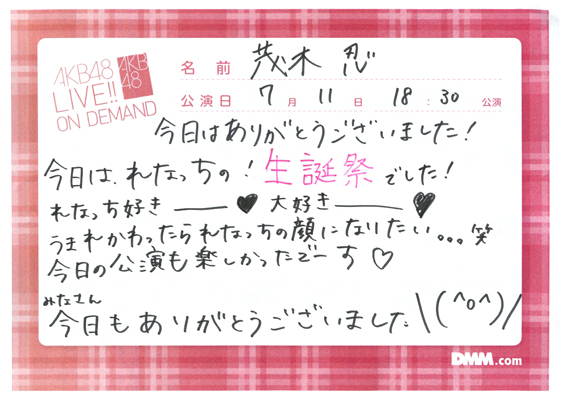 AKB48
LIVE!!
ON DEMAND
AKB
48
名前 茂木 忍
公演日 7月 11日 18:30公演
今日はありがとうございました!
今日は、れなっちの!生誕祭でした!
れなっち好き――♥大好き――♥
うまれかわったられなっちの顔になりたい。。。笑
今日の公演も楽しかったでーす♡
みなさん
今日もありがとうございました\(^o^)/
DMM.com